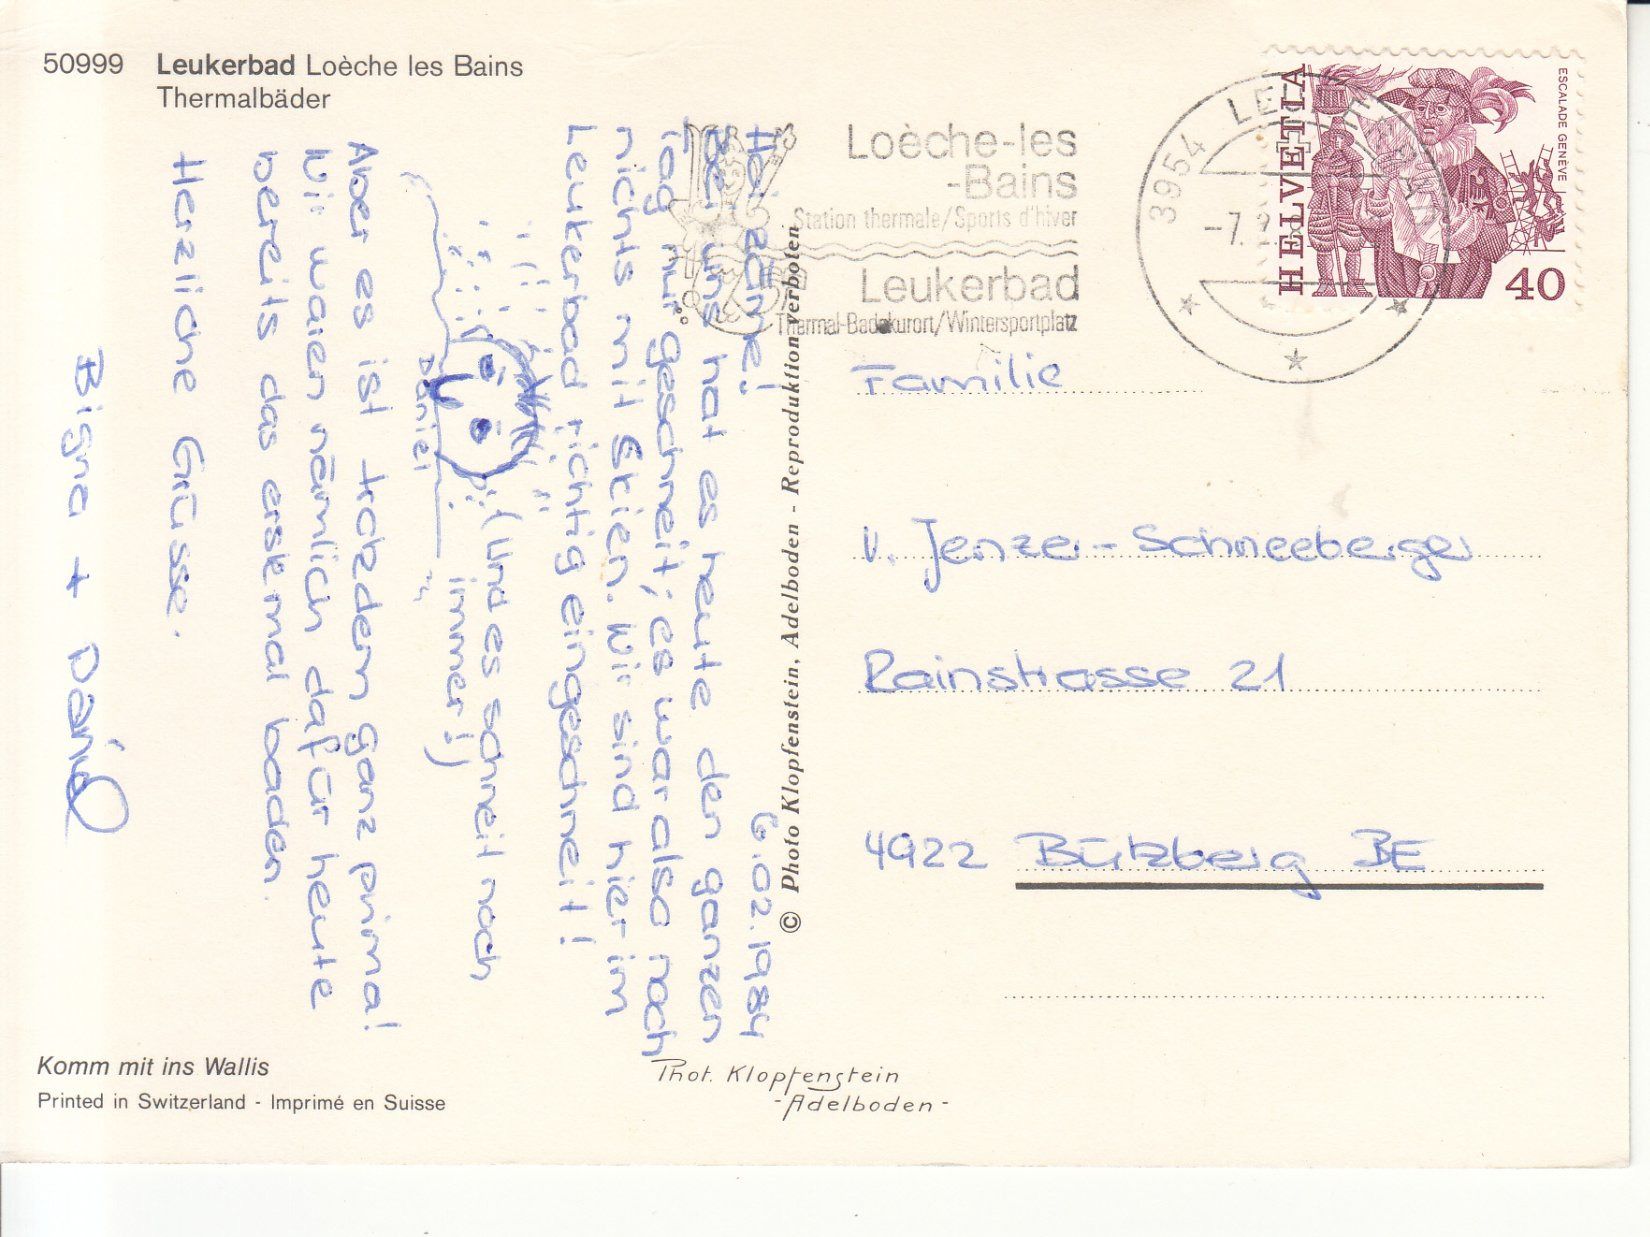 50999 Leukerbad Loèche les Bains
Thermalbäder
6.02.1984
Hoi zäme!
Bei uns hat es heute den ganzen
Tag nur geschneit; es war also noch
nichts mit Skien. Wir sind hier im
Leukerbad richtig eingeschneit!
(und es schneit noch
immer!)
Daniel
Aber es ist trotzdem ganz prima!
Wir waren nämlich dafür heute
bereits das erstemal baden.
Herzliche Grüsse.
Bigna + Daniel
© Photo Klopfenstein, Adelboden - Reproduktion verboten
Loèche-les
-Bains
Station thermale/Sports d'hiver
Leukerbad
Thermal-Badekurort/Wintersportplatz
3954 LEUKERBAD
-7. 2.
HELVETIA
ESCALADE GENÈVE
40
Familie
U. Jenzer-Schneeberger
Rainstrasse 21
4922 Bützberg BE
Komm mit ins Wallis
Printed in Switzerland - Imprimé en Suisse
Phot. Klopfenstein
-Adelboden-